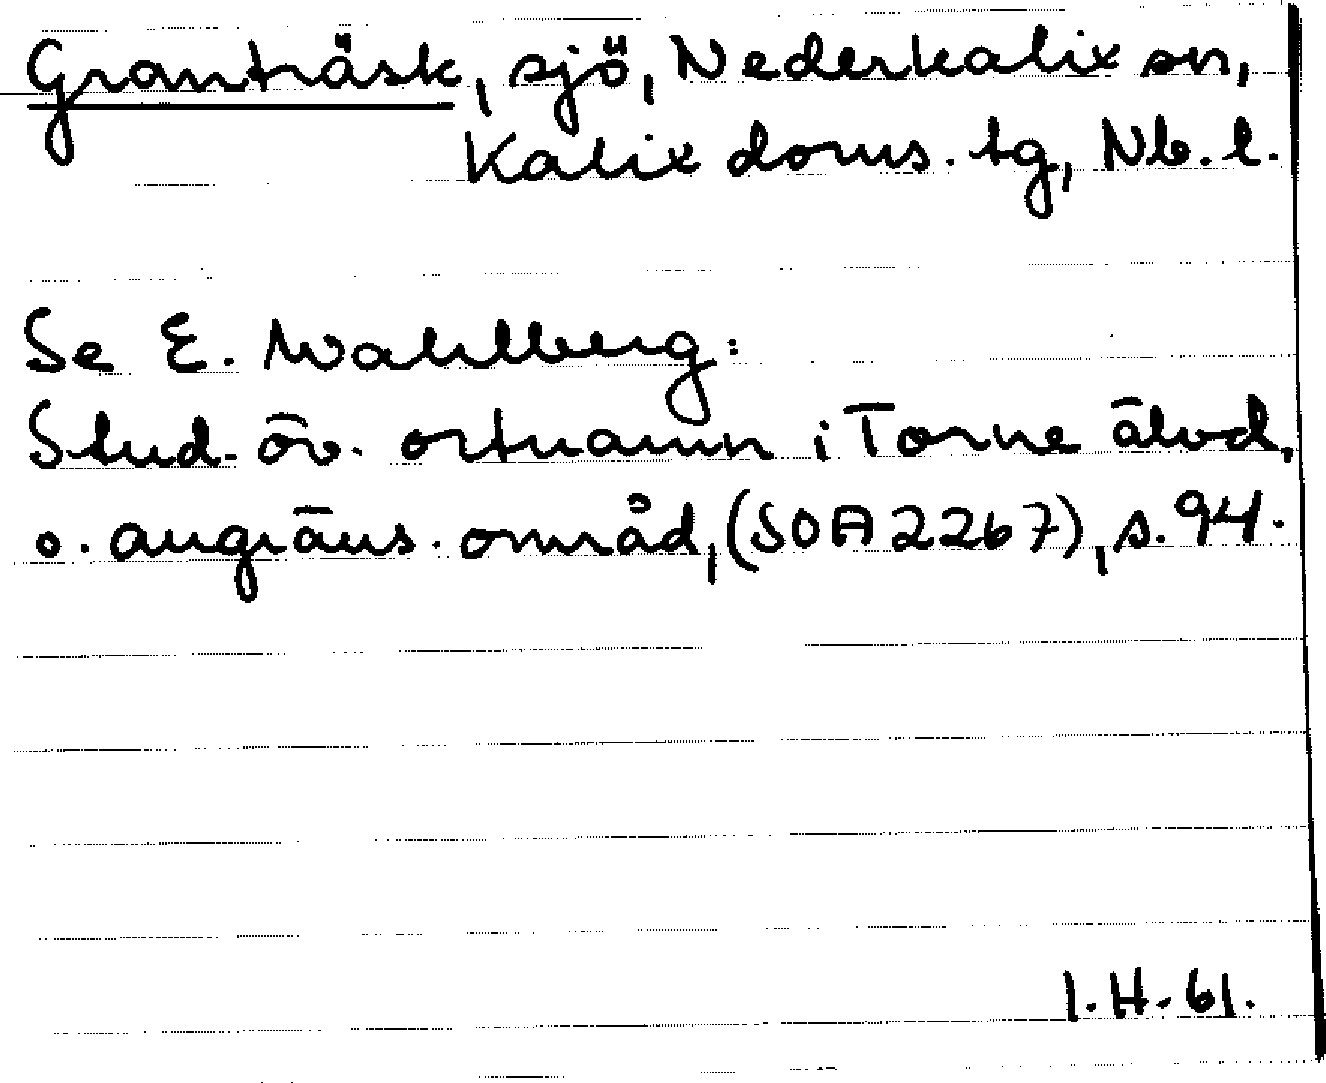 Granträsk, sjö, Nederkalix sn,
Kalix doms. tg, Nb. l.
Se E. Wahlberg:
Stud. öv. ortnamn i Torne älvd.
o. angräns. områd, (SOA 2267), s. 94.
I.H. 61.